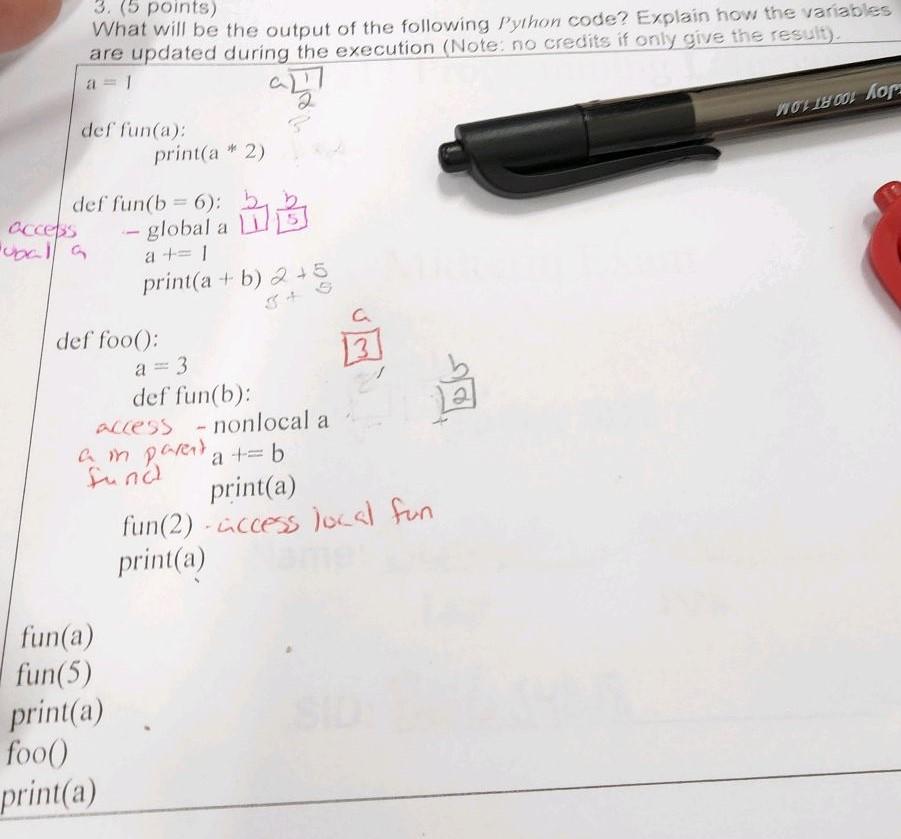 3. (5 points)
What will be the output of the following Python code? Explain how the variables
are updated during the execution (Note: no credits if only give the result).
a = 1
a 1
2
3
def fun(a):
print(a * 2)
def fun(b = 6): b b
access - global a 1 5
a
a += 1
print(a + b) 2 + 5
3 + 5
def foo():
a
3
a = 3
b
2
def fun(b):
access - nonlocal a
a in parent a += b
funct
print(a)
fun(2) - access local fun
print(a)
fun(a)
fun(5)
print(a)
foo()
print(a)
Joy 100 RT 1.0 M
SID: